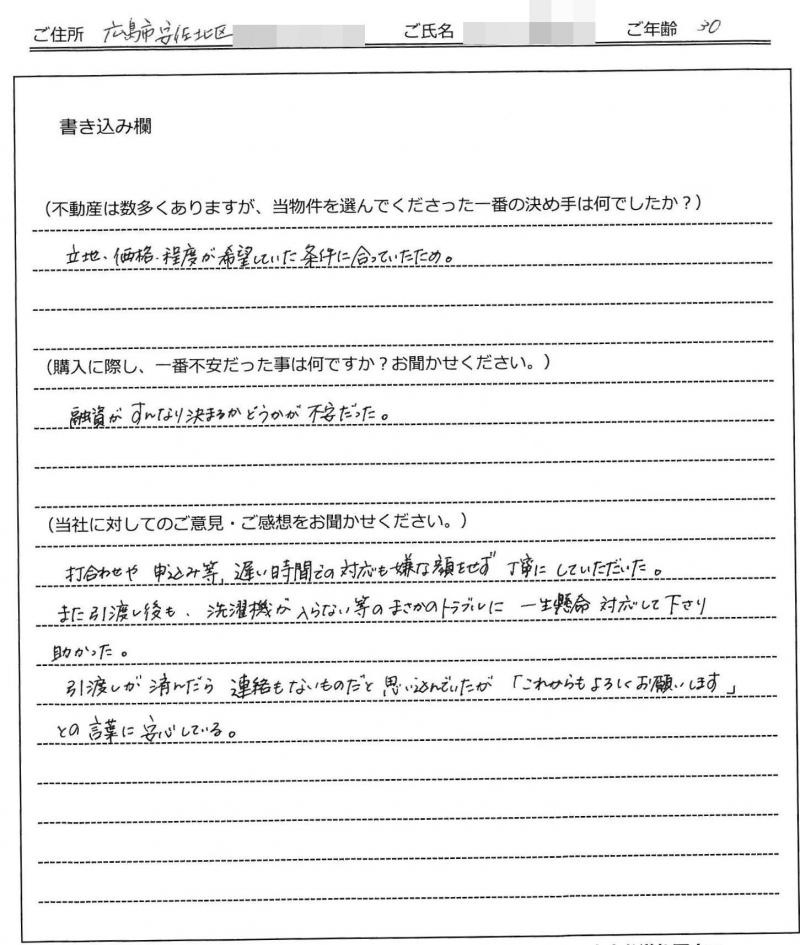 ご住所 広島市安佐北区 ご氏名 ご年齢 30
書き込み欄
(不動産は数多くありますが、当物件を選んでくださった一番の決め手は何でしたか?)
立地、価格、程度が希望していた条件に合っていたため。
(購入に際し、一番不安だった事は何ですか?お聞かせください。)
融資がすんなり決まるかどうかが不安だった。
(当社に対してのご意見・ご感想をお聞かせください。)
打合わせや申込み等、遅い時間での対応も嫌な顔をせず丁寧にしていただいた。
また引渡し後も、洗濯機が入らない等のまさかのトラブルに一生懸命対応して下さり
助かった。
引渡しが済んだら連絡もないものだと思い込んでいたが「これからもよろしくお願いします」
との言葉に安心している。